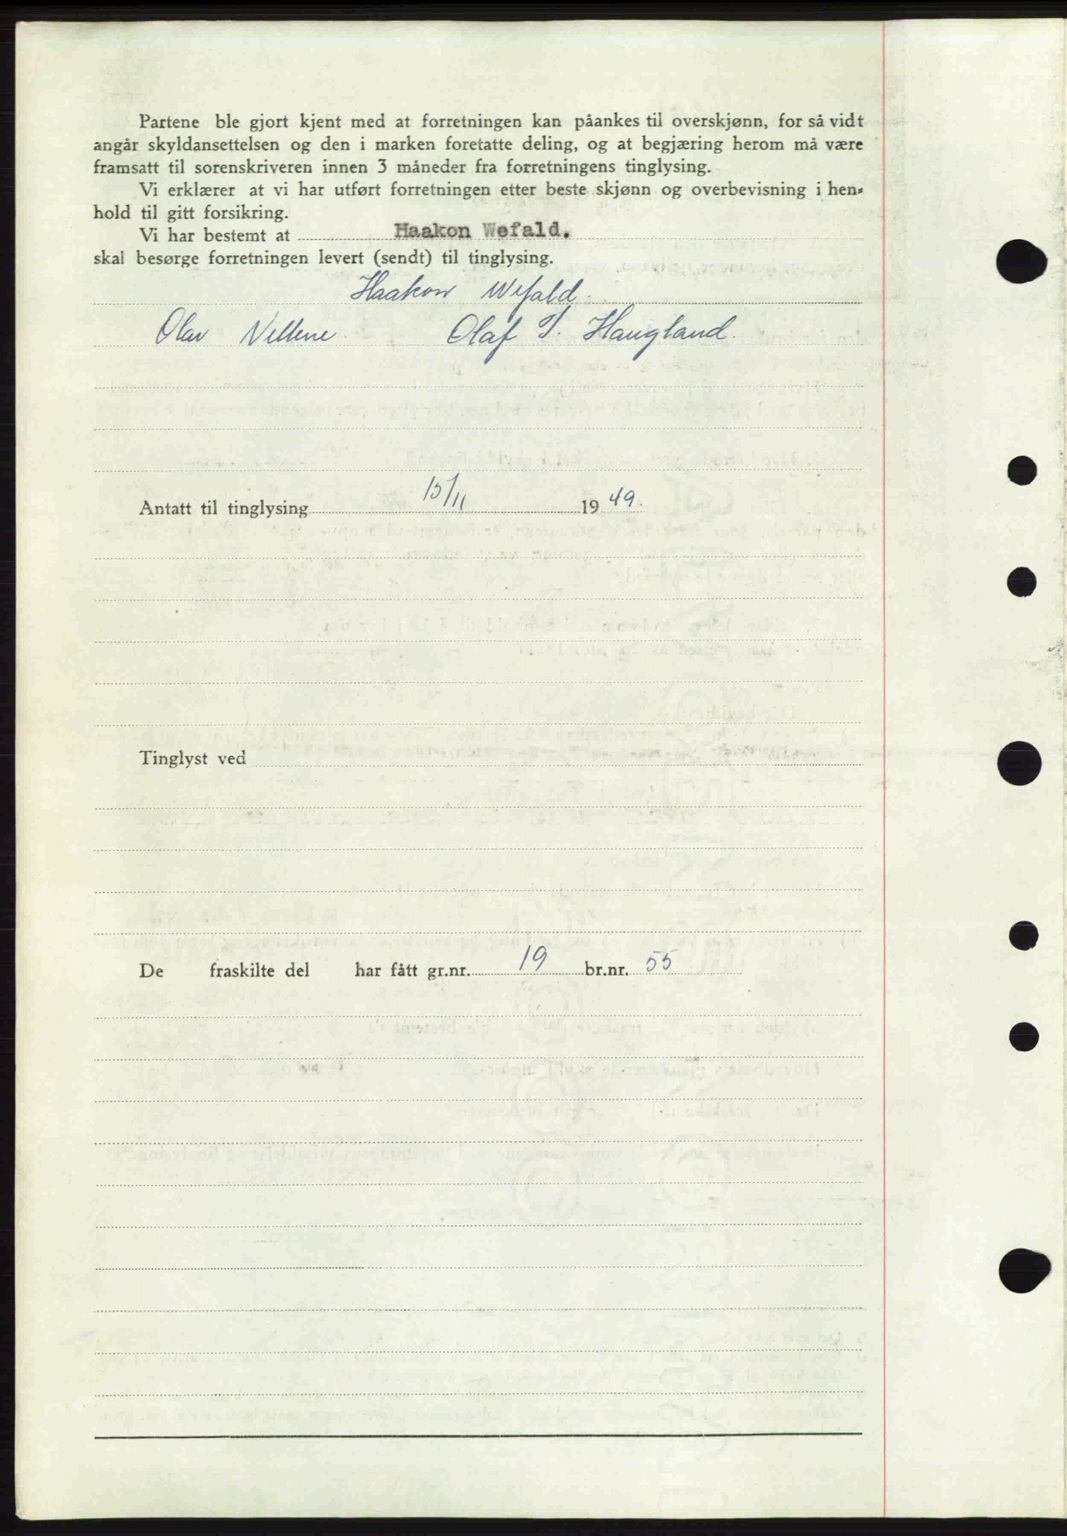 Partene ble gjort kjent med at forretningen kan påankes til overskjønn, for så vidt
angår skyldansettelsen og den i marken foretatte deling, og at begjæring herom må være
framsatt til sorenskriveren innen 3 måneder fra forretningens tinglysing.
Vi erklærer at vi har utført forretningen etter beste skjønn og overbevisning i hen-
hold til gitt forsikring.
Vi har bestemt at Haakon Wefald.
skal besørge forretningen levert (sendt) til tinglysing.
Haakon Wefald.
Olav Olaf T. Haugland.
Antatt til tinglysing 15/11 1949.
Tinglyst ved
De fraskilte del har fått gr.nr. 19 br.nr. 55